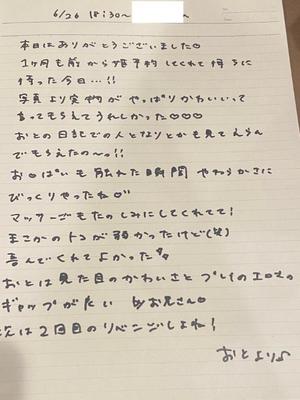 6/26 18:30〜
本日はありがとうございました♡
1ヶ月も前から姫予約してくれて待ちに
待った今日…!!
写真より実物がやっぱりかわいいって
言ってもらえてうれしかった♡♡♡
おとの日記での人となりとかも見てえらん
でもらえたの〜っ!!
お○ぱいも触れた瞬間 やわらかさに
びっくりやったね♡゛
マッサージもたのしみにしてくれてて!
まさかのトコが弱かったけど(笑)
喜んでくれてよかった
おとは見た目のかわいさとプレイのエロさの
ギャップがたい byお兄さん♡
次は2回目のリベンジしよね!
おとより♪